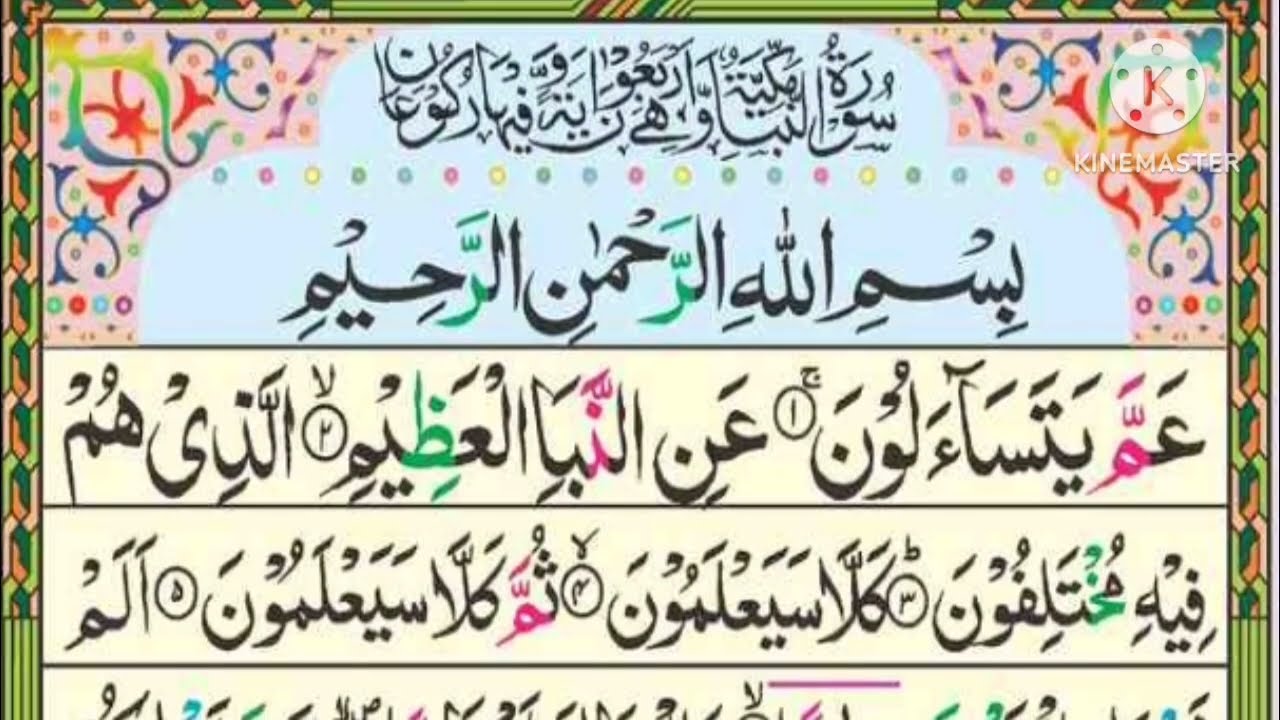 سُوْرَةُ النَّبَاِ مَكِّيَّةٌ وَّهِيَ اَرْبَعُوْنَ اٰيَةً وَّفِيْهَا رُكُوْعَانِ
KINEMASTER
بِسْمِ اللهِ الرَّحْمٰنِ الرَّحِيْمِ
عَمَّ يَتَسَآءَلُوْنَ ۚ﴿۱﴾ عَنِ النَّبَاِ الْعَظِيْمِ ۙ﴿۲﴾ الَّذِىْ هُمْ
فِيْهِ مُخْتَلِفُوْنَ ؕ﴿۳﴾ كَلَّا سَيَعْلَمُوْنَ ۙ﴿۴﴾ ثُمَّ كَلَّا سَيَعْلَمُوْنَ ﴿۵﴾ اَلَمْ